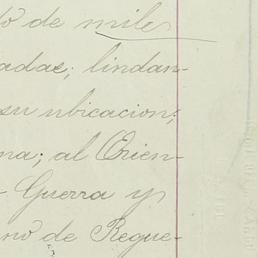 do de mile
adas; lindan-
su ubicacion;
na; al Orien-
Guerra y
no de Regue-